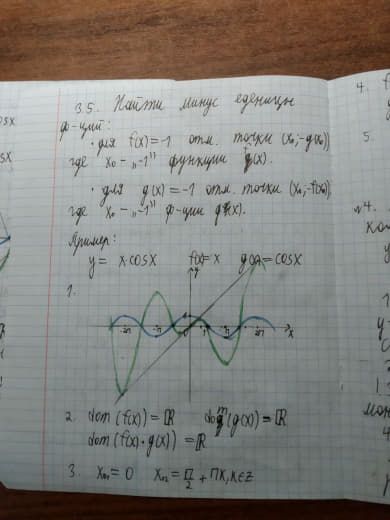 осх
сх
3.5. Найти минус еденицы
ф-ций:
• для f(x)=-1 отм. точки (x₀;-g(x₀))
где x₀ - „-1" функции f(x).
• для g(x)=-1 отм. точки (x₀;-f(x₀))
где x₀ - „-1" ф-ции g(x).
Пример:
y = x·cosx f(x)=x g(x)=cosx
1.
y
-2π -π π 2π x
2. dom(f(x)) = ℝ dom(g(x)) = ℝ
dom(f(x)·g(x)) = ℝ
3. xₙ₁ = 0 xₙ₂ = π/2 + πk, k∈Z
4. f
5.
√4.
ко
y=
1.
мо
4